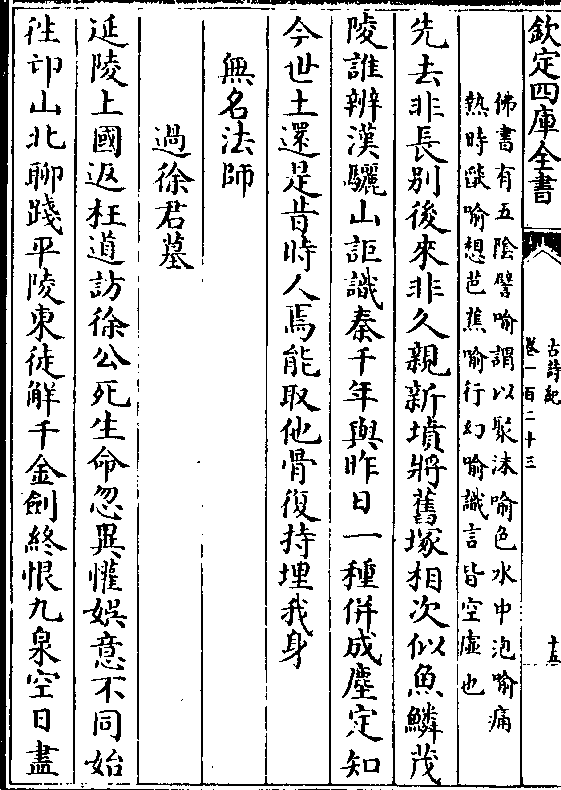 欽定四庫全書
古詩紀
卷一百二十三
十五
佛書有五陰譬喻謂以聚沫喻色水中泡喻痛
熱時燄喻想芭蕉喻行幻喻識言皆空虛也
先去非長別後來非久親新墳將舊塚相次似魚鱗茂
陵誰辨漢驪山詎識秦千年與昨日一種併成塵定知
今世土還是昔時人焉能取他骨復持埋我身
無名法師
過徐君墓
延陵上國返枉道訪徐公死生命忽異懽娛意不同始
往邙山北聊踐平陵東徒解千金劍終恨九泉空日盡